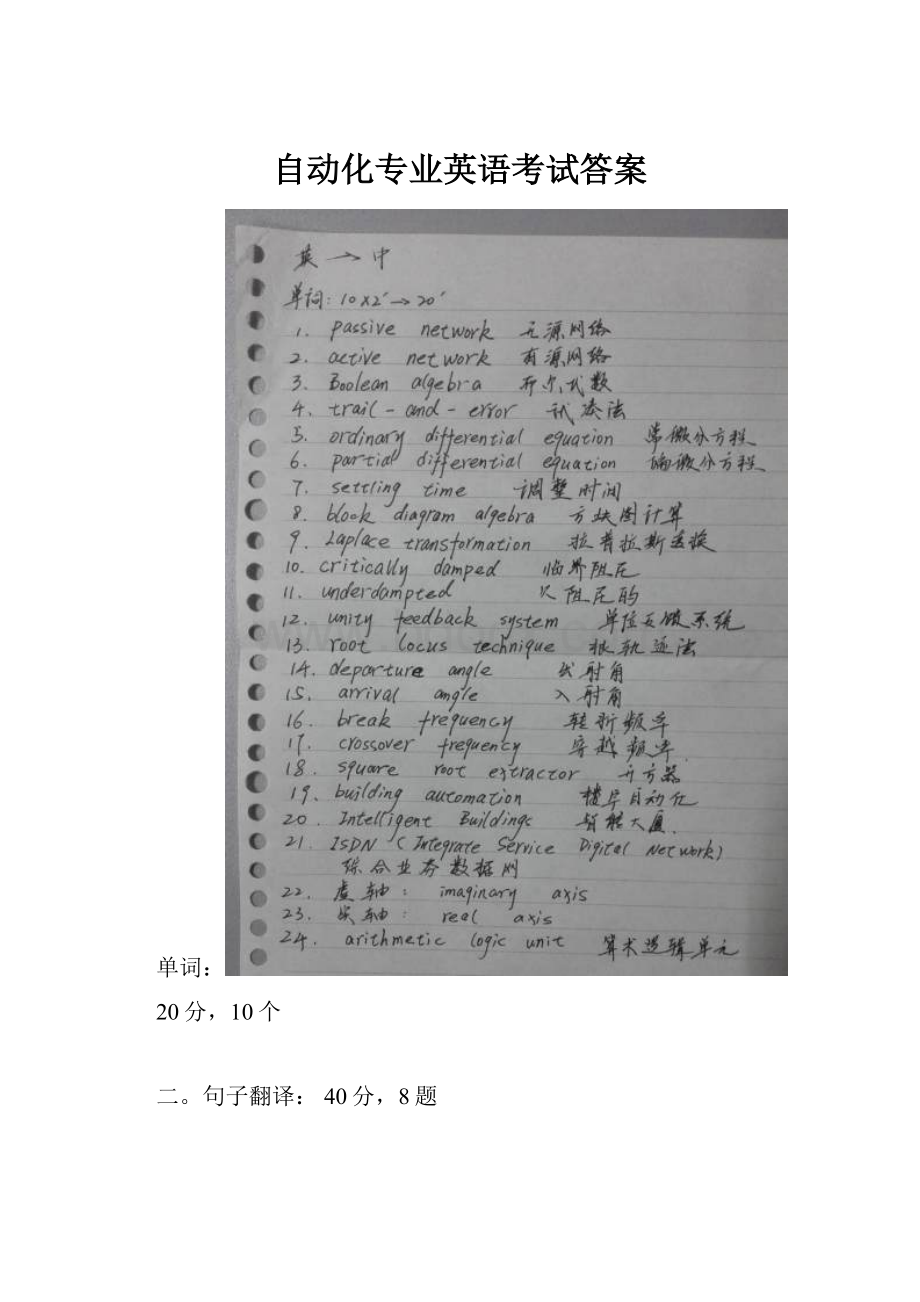 自动化专业英语考试答案
英→中
单词：10×2′→20′
1. passive network 无源网络
2. active network 有源网络
3、Boolean algebra 开尔代数
4、trail-and-error 试凑法
5. ordinary differential equation 常微分方程
6. partial differential equation 偏微分方程
7. settling time 调整时间
8. block diagram algebra 方块图计算
9. Laplace transformation 拉普拉斯变换
10. critically damped 临界阻尼
11. underdampted 欠阻尼的
12. unity feedback system 单位反馈系统
13. root locus technique 根轨迹法
14. departure angle 出射角
15. arrival angle 入射角
16. break frequency 转折频率
17. crossover frequency 穿越频率.
18. square root extractor 开方器
19. building automation 楼宇自动化
20. Intelligent Buildings 智能大厦.
21. ISDN (Integrate Service Digital Network)
综合业务数据网
22. 虚轴： imaginary axis
23. 实轴： real axis
24. arithmetic logic unit 算术逻辑单元
单词：
20分，10个
二。句子翻译： 40分，8题